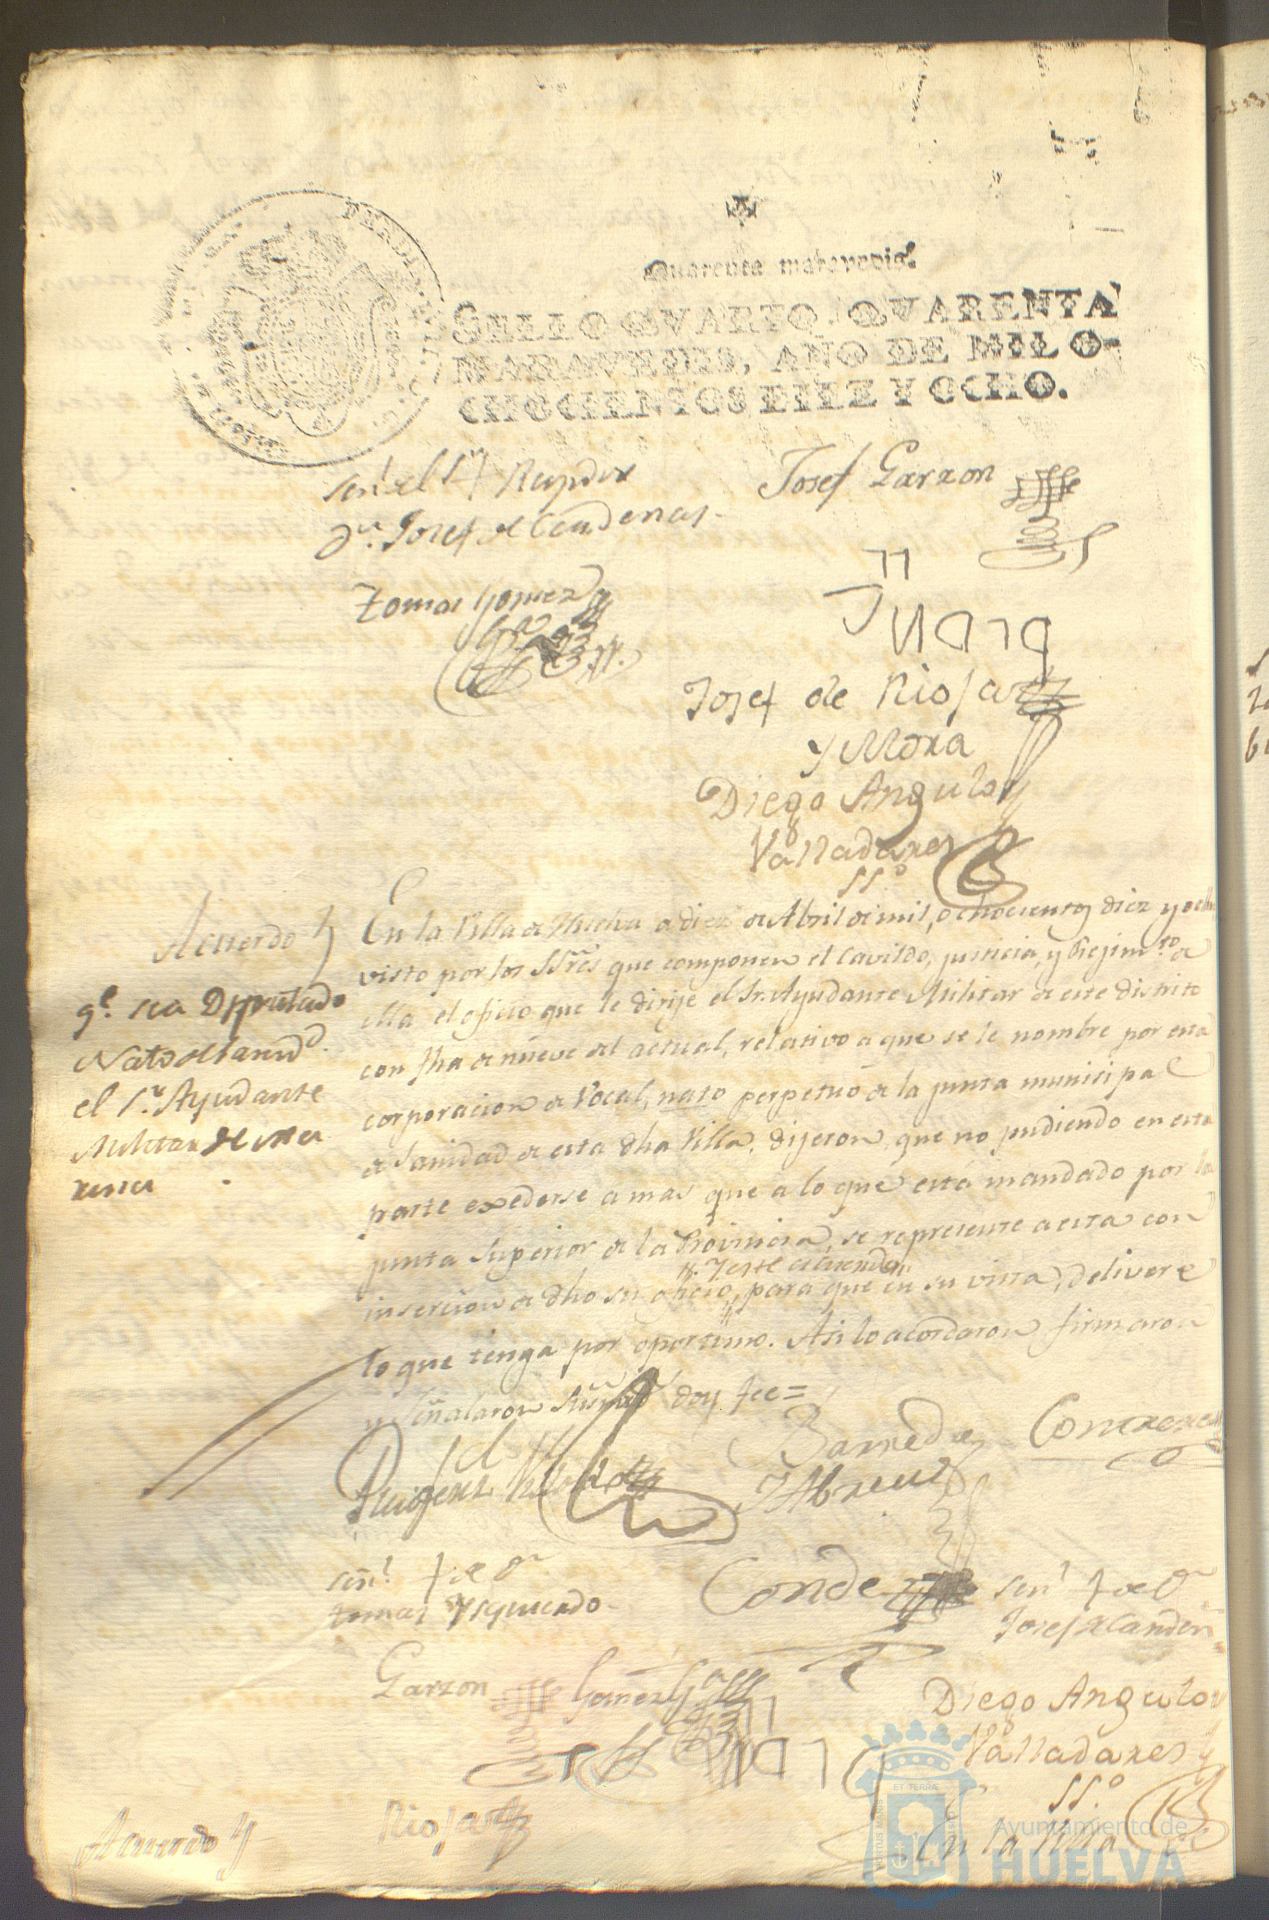 Quarenta maravedis.
SELLO QVARTO, QVARENTA
MARAVEDIS, AÑO DE MIL O-
CHOCIENTOS DIEZ Y OCHO.
Josef Garzon
Dn. Josef de Cardenas
Tomas Gomez
Josef de Rioja
y Mora
Diego Angulo
Valladares
SSº
Acuerdo
En la Villa de Huelva a diez de Abril de mil, ochocientos diez y ocho
visto por los SSres que componen el Cavildo, justicia, y Rejimto de
ella el oficio que le dirije el Sr. Ayudante Militar de este distrito
con fha de nueve del actual, relativo a que se le nombre por esta
corporacion de Vocal, nato perpetuo de la junta municipal
de Sanidad de esta dha Villa, dijeron, que no pudiendo en esta
parte exederse a mas que a lo que está mandado por la
junta Superior de la Provincia, se represente a esta con
insercion de dho su oficio, para que en su vista, delivere
lo que tenga por oportuno. Asi lo acordaron firmaron
y señalaron doy fee=
qe. sea Diputado
Nato de
el Sr. Ayudante
Militar de
Barreda
y Abreu
Contreras
señl. de Dn
Tomas Ysquierdo
Conde
señl de Dn
Josef de Carden
Garzon
Gomez
Diego Angulo
Valladares
SSº
Rioja
Acuerdo
En la Villa
ET TERRÆ
Ayuntamiento de
HUELVA